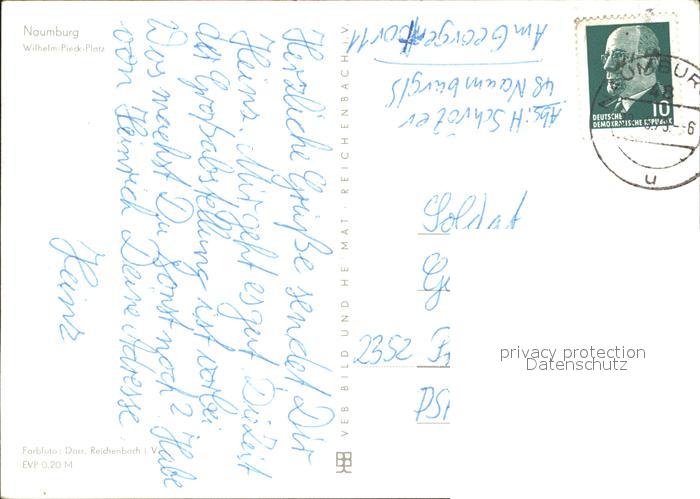 Naumburg
Wilhelm-Pieck-Platz
Herzliche Grüße sendet Dir
Heinz. Mir geht es gut. Die Zeit
der Großabstellung ist vorbei.
Was machst Du sonst noch? Habe
von Heinrich Deine Adresse.
Heinz
Farbfoto: Dorr, Reichenbach i. V.
EVP 0,20 M
VEB BILD UND HEIMAT · REICHENBACH I. V.
Abs: H Schröter
48 Naumburg/S
Am Georgentor 11
DEUTSCHE
DEMOKRATISCHE REPUBLIK
10
Soldat
2352
privacy protection
Datenschutz